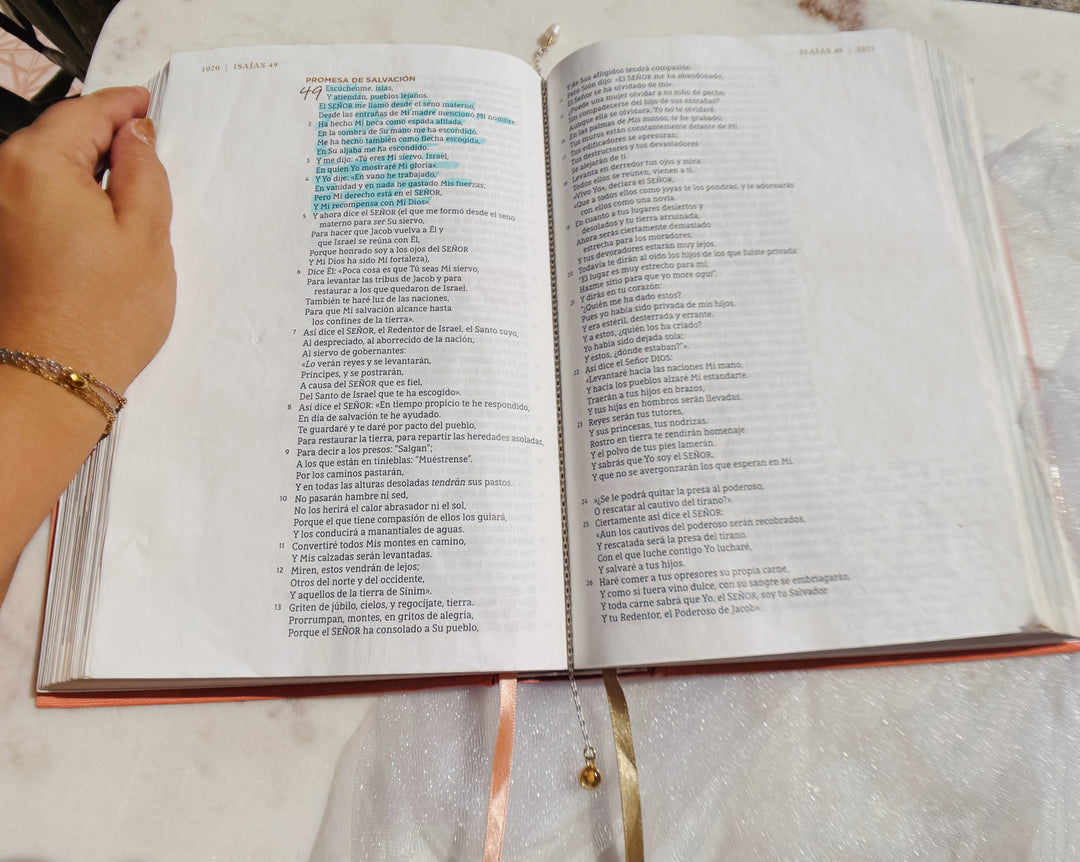 1070 | ISAÍAS 49
PROMESA DE SALVACIÓN
49 Escúchenme, islas,
Y atiendan, pueblos lejanos.
El SEÑOR me llamó desde el seno materno,
Desde las entrañas de Mi madre mencionó Mi nombre.
2 Ha hecho Mi boca como espada afilada,
En la sombra de Su mano me ha escondido.
Me ha hecho también como flecha escogida,
En Su aljaba me ha escondido.
3 Y me dijo: «Tú eres Mi siervo, Israel,
En quien Yo mostraré Mi gloria».
4 Y Yo dije: «En vano he trabajado,
En vanidad y en nada he gastado Mis fuerzas;
Pero Mi derecho está en el SEÑOR,
Y Mi recompensa con Mi Dios».
5 Y ahora dice el SEÑOR (el que me formó desde el seno
materno para ser Su siervo,
Para hacer que Jacob vuelva a Él y
que Israel se reúna con Él,
Porque honrado soy a los ojos del SEÑOR
Y Mi Dios ha sido Mi fortaleza),
6 Dice Él: «Poca cosa es que Tú seas Mi siervo,
Para levantar las tribus de Jacob y para
restaurar a los que quedaron de Israel.
También te haré luz de las naciones,
Para que Mi salvación alcance hasta
los confines de la tierra».
7 Así dice el SEÑOR, el Redentor de Israel, el Santo suyo,
Al despreciado, al aborrecido de la nación,
Al siervo de gobernantes:
«Lo verán reyes y se levantarán,
Príncipes, y se postrarán,
A causa del SEÑOR que es fiel,
Del Santo de Israel que te ha escogido».
8 Así dice el SEÑOR: «En tiempo propicio te he respondido,
En día de salvación te he ayudado.
Te guardaré y te daré por pacto del pueblo,
Para restaurar la tierra, para repartir las heredades asoladas,
9 Para decir a los presos: "Salgan";
A los que están en tinieblas: "Muéstrense".
Por los caminos pastarán,
Y en todas las alturas desoladas tendrán sus pastos.
10 No pasarán hambre ni sed,
No los herirá el calor abrasador ni el sol,
Porque el que tiene compasión de ellos los guiará,
Y los conducirá a manantiales de aguas.
11 Convertiré todos Mis montes en camino,
Y Mis calzadas serán levantadas.
12 Miren, estos vendrán de lejos;
Otros del norte y del occidente,
Y aquellos de la tierra de Sinim».
13 Griten de júbilo, cielos, y regocíjate, tierra.
Prorrumpan, montes, en gritos de alegría,
Porque el SEÑOR ha consolado a Su pueblo,
ISAÍAS 49 | 1071
Y de Sus afligidos tendrá compasión.
Pero Sión dijo: «El SEÑOR me ha abandonado,
El Señor se ha olvidado de mí».
¿Puede una mujer olvidar a su niño de pecho,
Sin compadecerse del hijo de sus entrañas?
Aunque ella se olvidara, Yo no te olvidaré.
En las palmas de Mis manos, te he grabado;
Tus muros están constantemente delante de Mí.
Tus edificadores se apresuran;
Tus destructores y tus devastadores
Se alejarán de ti.
Levanta en derredor tus ojos y mira:
Todos ellos se reúnen, vienen a ti.
«Vivo Yo», declara el SEÑOR,
«Que a todos ellos como joyas te los pondrás, y te adornarás
con ellos como una novia.
En cuanto a tus lugares desiertos y
desolados y tu tierra arruinada,
Ahora serás ciertemente demasiado
estrecha para los moradores,
Y tus devoradores estarán muy lejos.
20 Todavía te dirán al oído los hijos de los que fuiste privada:
"El lugar es muy estrecho para mí;
Hazme sitio para que yo more aquí".
21 Y dirás en tu corazón:
"¿Quién me ha dado estos?
Pues yo había sido privada de mis hijos,
Y era estéril, desterrada y errante.
Y a estos, ¿quién los ha criado?
Yo había sido dejada sola;
Y estos, ¿dónde estaban?"».
22 Así dice el Señor DIOS:
«Levantaré hacia las naciones Mi mano,
Y hacia los pueblos alzaré Mi estandarte.
Traerán a tus hijos en brazos,
Y tus hijas en hombros serán llevadas.
23 Reyes serán tus tutores,
Y sus princesas, tus nodrizas.
Rostro en tierra te rendirán homenaje
Y el polvo de tus pies lamerán.
Y sabrás que Yo soy el SEÑOR,
Y que no se avergonzarán los que esperan en Mí.
24 »¿Se le podrá quitar la presa al poderoso,
O rescatar al cautivo del tirano?».
25 Ciertamente así dice el SEÑOR:
«Aun los cautivos del poderoso serán recobrados,
Y rescatada será la presa del tirano.
Con el que luche contigo Yo lucharé,
Y salvaré a tus hijos.
26 Haré comer a tus opresores su propia carne,
Y como si fuera vino dulce, con su sangre se embriagarán.
Y toda carne sabrá que Yo, el SEÑOR, soy tu Salvador
Y tu Redentor, el Poderoso de Jacob».